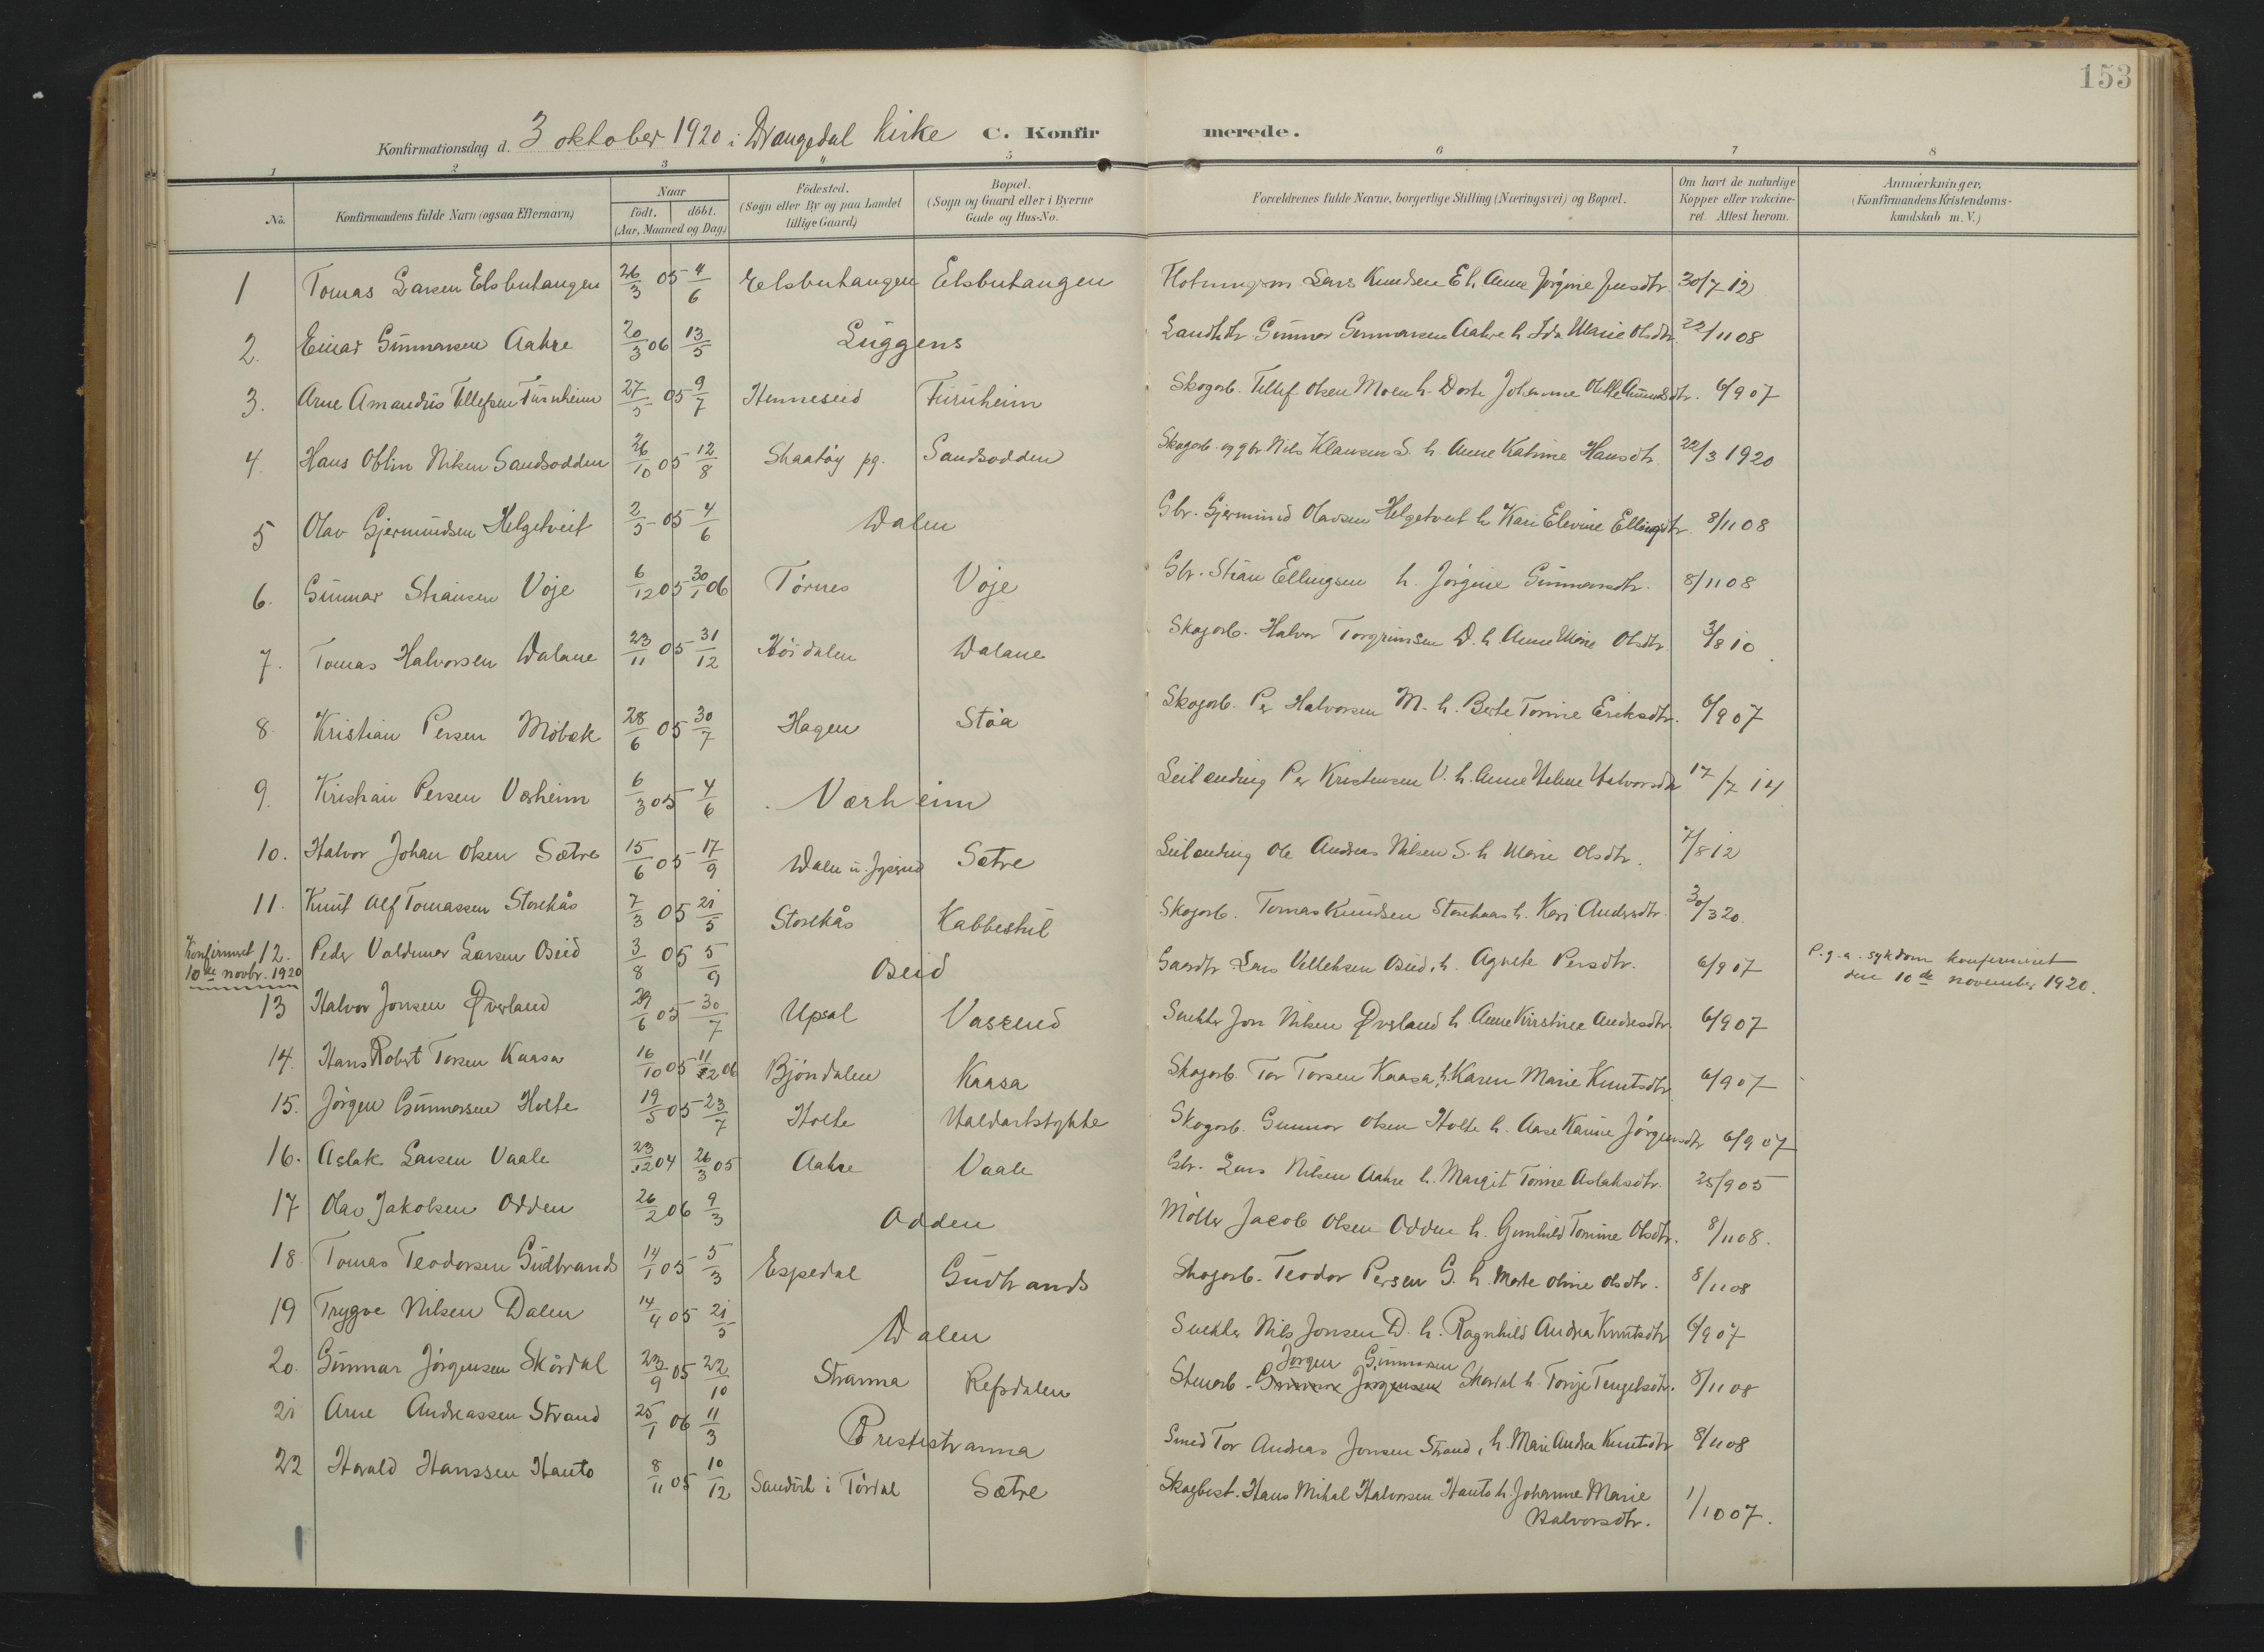 153
Konfirmationsdag d. 3 oktober 1920 i Drangedal kirke C. Konfirmerede.
1 2 3 4 5 6 7 8
No. Konfirmandens fulde Navn (ogsaa Efternavn) Naar födt. döbt. (Aar, Maaned og Dag) Födested. (Sogn eller By og paa Landet tillige Gaard) Bopæl. (Sogn og Gaard eller i Byerne Gade og Hus-No. Forældrenes fulde Navne, borgerlige Stilling (Næringsvei) og Bopæl. Om havt de naturlige Kopper eller vakcineret. Attest herom. Anmærkninger. (Konfirmandens Kristendomskundskab m. V.)
1 Tomas Larsen Elsbutangen 26/3 05 4/6 Elsbutangen Elsbutangen Lars Knudsen E h. Anne Jørgine Jensdtr. 30/7 12
2. Einar Gunnarsen Aahre 20/3 06 13/5 Luggens Landh. Gunnar Gunnarsen Aahre h. Ida Marie Olsdtr. 22/11 08
3. Arne Amandus Tellefsen Furuheim 27/5 05 9/7 Henneseid Furuheim Skogarb. Tellef Olsen Moen h. Dorte Johanne Amundsdtr. 6/9 07
4. Hans Oblin Nilsen Sandsodden 26/10 05 12/8 Skaatøy pg. Sandsodden Skogarb. og gbr. Nils Klausen S. h. Anne Katrine Hansdtr. 22/3 1920
5 Olav Gjermundsen Helgetveit 2/5 05 4/6 Dalen Gbr. Gjermund Olavsen Helgetveit h. Kari Elevine Ellingsdtr. 8/11 08
6. Gunnar Stiansen Voje 6/12 05 30/1 06 Törnes Voje Gbr. Stian Ellingsen h. Jörgine Gunnarsdtr. 8/11 08
7. Tomas Halvorsen Dalane 23/11 05 31/12 Höidalen Dalane Skogarb. Halvor Torgrimsen D. h. Anne Marie Olsdtr. 3/8 10
8. Kristian Persen Möbæk 28/6 05 30/7 Hagen Støa Skogarb. Per Halvorsen M. h. Berte Tomine Eriksdtr. 6/9 07
9. Kristian Persen Værheim 6/3 05 4/6 Værheim Leilending Per Kristensen V. h. Anne Helene Halvorsdtr 17/7 14
10. Halvor Johan Olsen Sætre 15/6 05 17/9 Dalen u. Sætre Leilending Ole Andreas Nilsen S. h. Marie Olsdtr. 7/8 12
11. Knut Alf Tomassen Storekås 7/3 05 21/5 Storekås Kabbestul Skogarb. Tomas Knudsen Storekaas h. Kari Andersdtr. 30/3 20.
Konfirmeret 10de novbr. 1920
12. Peder Valdemar Larsen Øseid 3/8 05 5/9 Øseid Gaardbr Lars Vetlehsen Øseid, h. Agnete Persdtr. 6/9 07 P.g.a. sykdom konfirmeret
den 10de november 1920.
13 Halvor Jonsen Øverland 29/6 05 30/7 Upsal Vasseud Snekker Jon Nilsen Øverland h. Anne Kirstine Andersdtr. 6/9 07
14. Hans Robert Torsen Kaasa 16/10 05 11/2 06 Bjöndalen Kaasa Skogarb. Tor Torsen Kaasa, h. Karen Marie Knutsdtr 6/9 07
15. Jörgen Gunnarsen Holte 19/5 05 23/7 Holte Skogarb. Gunnar Olsen Holte h. Aase Karine Jörgensdtr 6/9 07
16. Aslak Larsen Vaale 23/12 04 26/3 05 Aahre Vaale Gbr. Lars Nilsen Aahre h. Margit Tomine Aslaksdtr. 25/9 05
17 Olav Jakobsen Odden 26/2 06 9/3 Odden Möller Jacob Olsen Odden h. Gunhild Tomine Olsdtr. 8/11 08.
18. Tomas Teodorsen Gudbrands 14/1 05 5/3 Espedal Gudbrands Skogarb. Teodor Persen G. h. Marte Oline Olsdtr. 8/11 08
19 Trygve Nilsen Dalen 14/4 05 21/5 Dalen Snekker Nils Jonsen D. h. Ragnhild Andrea Knutsdtr 6/9 07
Jörgen Gunnarsen
20. Gunnar Jörgensen Skårdal 23/9 05 22/10 Stranna Refsdalen Stenarb. Gunnar Jörgensen Skårdal h. Tengelsdtr. 8/11 08
21 Arne Andreassen Strand 25/1 06 11/3 Prestestranna Smed Tor Andreas Jonsen Strand, h. Mari Andrea Knutsdtr 8/11 08
22 Harald Hanssen Hauto 8/11 05 10/12 Sandvik i Tördal Sætre Skogbest. Hans Mikal Halvorsen Hauto h. Johanne Marie
Halvorsdtr. 1/10 07.